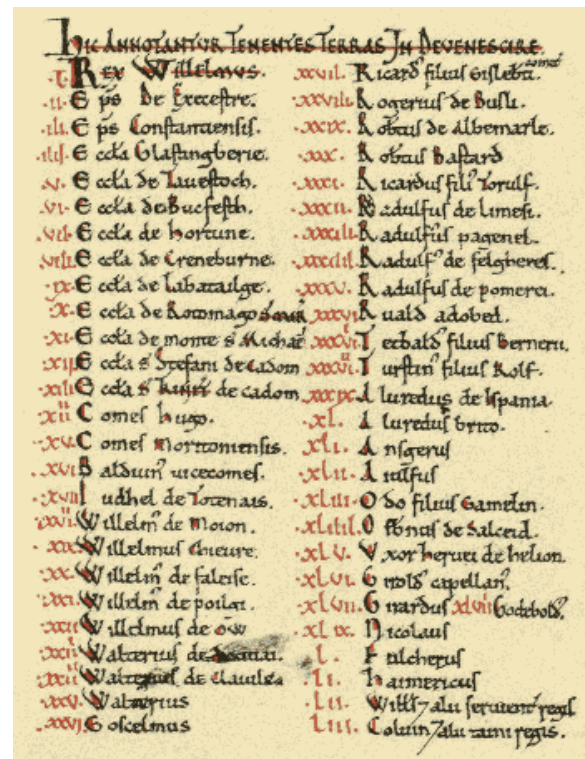 HIC ANNOTANTVR TENENTES TERRAS IN DEVENESCIRE.
.I. REX Willelmus.
.II. Eps De Execestre.
.III. Eps Constantiensis.
.IIII. Eccla Glastingberie.
.V. Eccla de Tauestoch.
.VI. Eccla de Bucfesth.
.VII. Eccla de hortune.
.VIII. Eccla de Creneburne.
.IX. Eccla de labatailge.
.X. Eccla de Rotomago
.XI. Eccla de monte s Michael
.XII. Eccla s Stefani de cadom
.XIII. Eccla s de cadom
.XIIII. Comes hugo.
.XV. Comes Moritoniensis.
.XVI. Balduin uicecomes.
.XVII. Iudhel de Totenais.
.XVIII. Willelm de Moion.
.XIX. Willelmus Chieure.
.XX. Willelm de faleise.
.XXI. Willelm de poilgi.
.XXII. Willelmus de ow
.XXIII. Walterius de
.XXIIII. Walterius de Clauile
.XXV. Walterius
.XXVI. Goscelmus
.XXVII. Ricard filius Gisleb comit
.XXVIII. Rogerius de Busli.
.XXIX. Robtus de Albemarle.
.XXX. Robtus Bastard
.XXXI. Ricardus fili Torulf.
.XXXII. Radulfus de limesi.
.XXXIII. Radulfus pagenel.
.XXXIIII. Radulf de felgheres.
.XXXV. Radulfus de pomerei.
.XXXVI. Ruald adobed.
.XXXVII. Tetbald filius Berneri.
.XXXVIII. Turstin filius Rolf.
.XXXIX. Aluredus de Ispania.
.XL. Aluredus brito.
.XLI. Ansgerus
.XLII. Aiulfus
.XLIII. Odo filius Gamelin.
.XLIIII. Osbnus de Salceid.
.XLV. Vxor heruei de helion.
.XLVI. Girold capellan.
.XLVII. Girardus XLVIII Godebold.
.XLIX. Nicolaus
.L. Fulcherus
.LI. haimericus
.LII. Willes 7 alii seruient regis
.LIII. Coluin 7 alii taini regis.